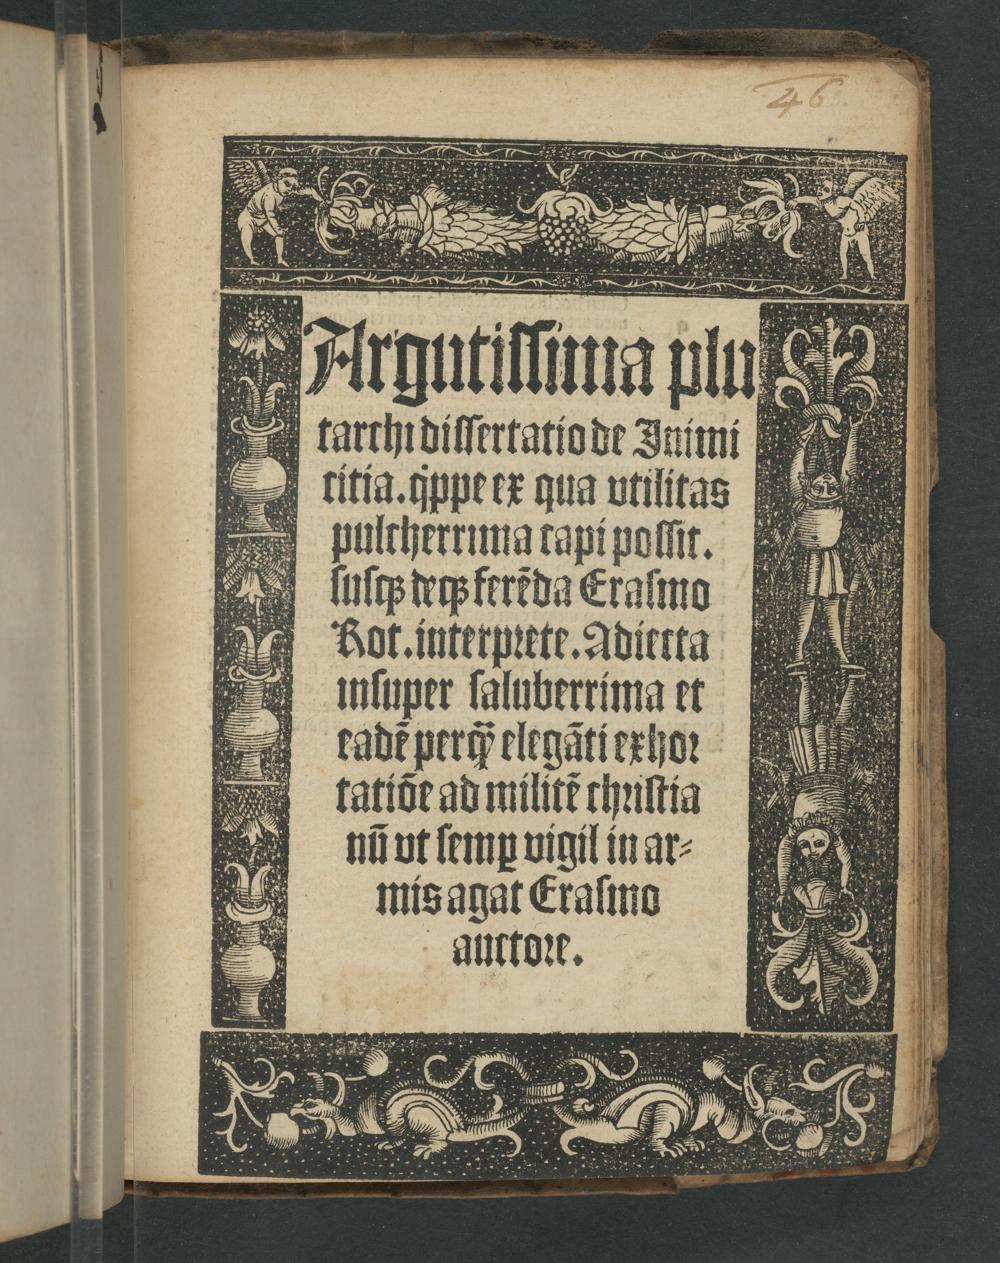 46
Argutissima plu
tarchi dissertatio de Inimi
citia. q̇ppe ex qua vtilitas
pulcherrima capi possit.
susqꝫ deqꝫ ferēda Erasmo
Rot. interprete. Adiecta
insuper saluberrima et
eadē perq̄ꝫ elegāti exhor
tatiōe ad militē christia
nū vt semꝑ vigil in ar⸗
mis agat Erasmo
auctore.